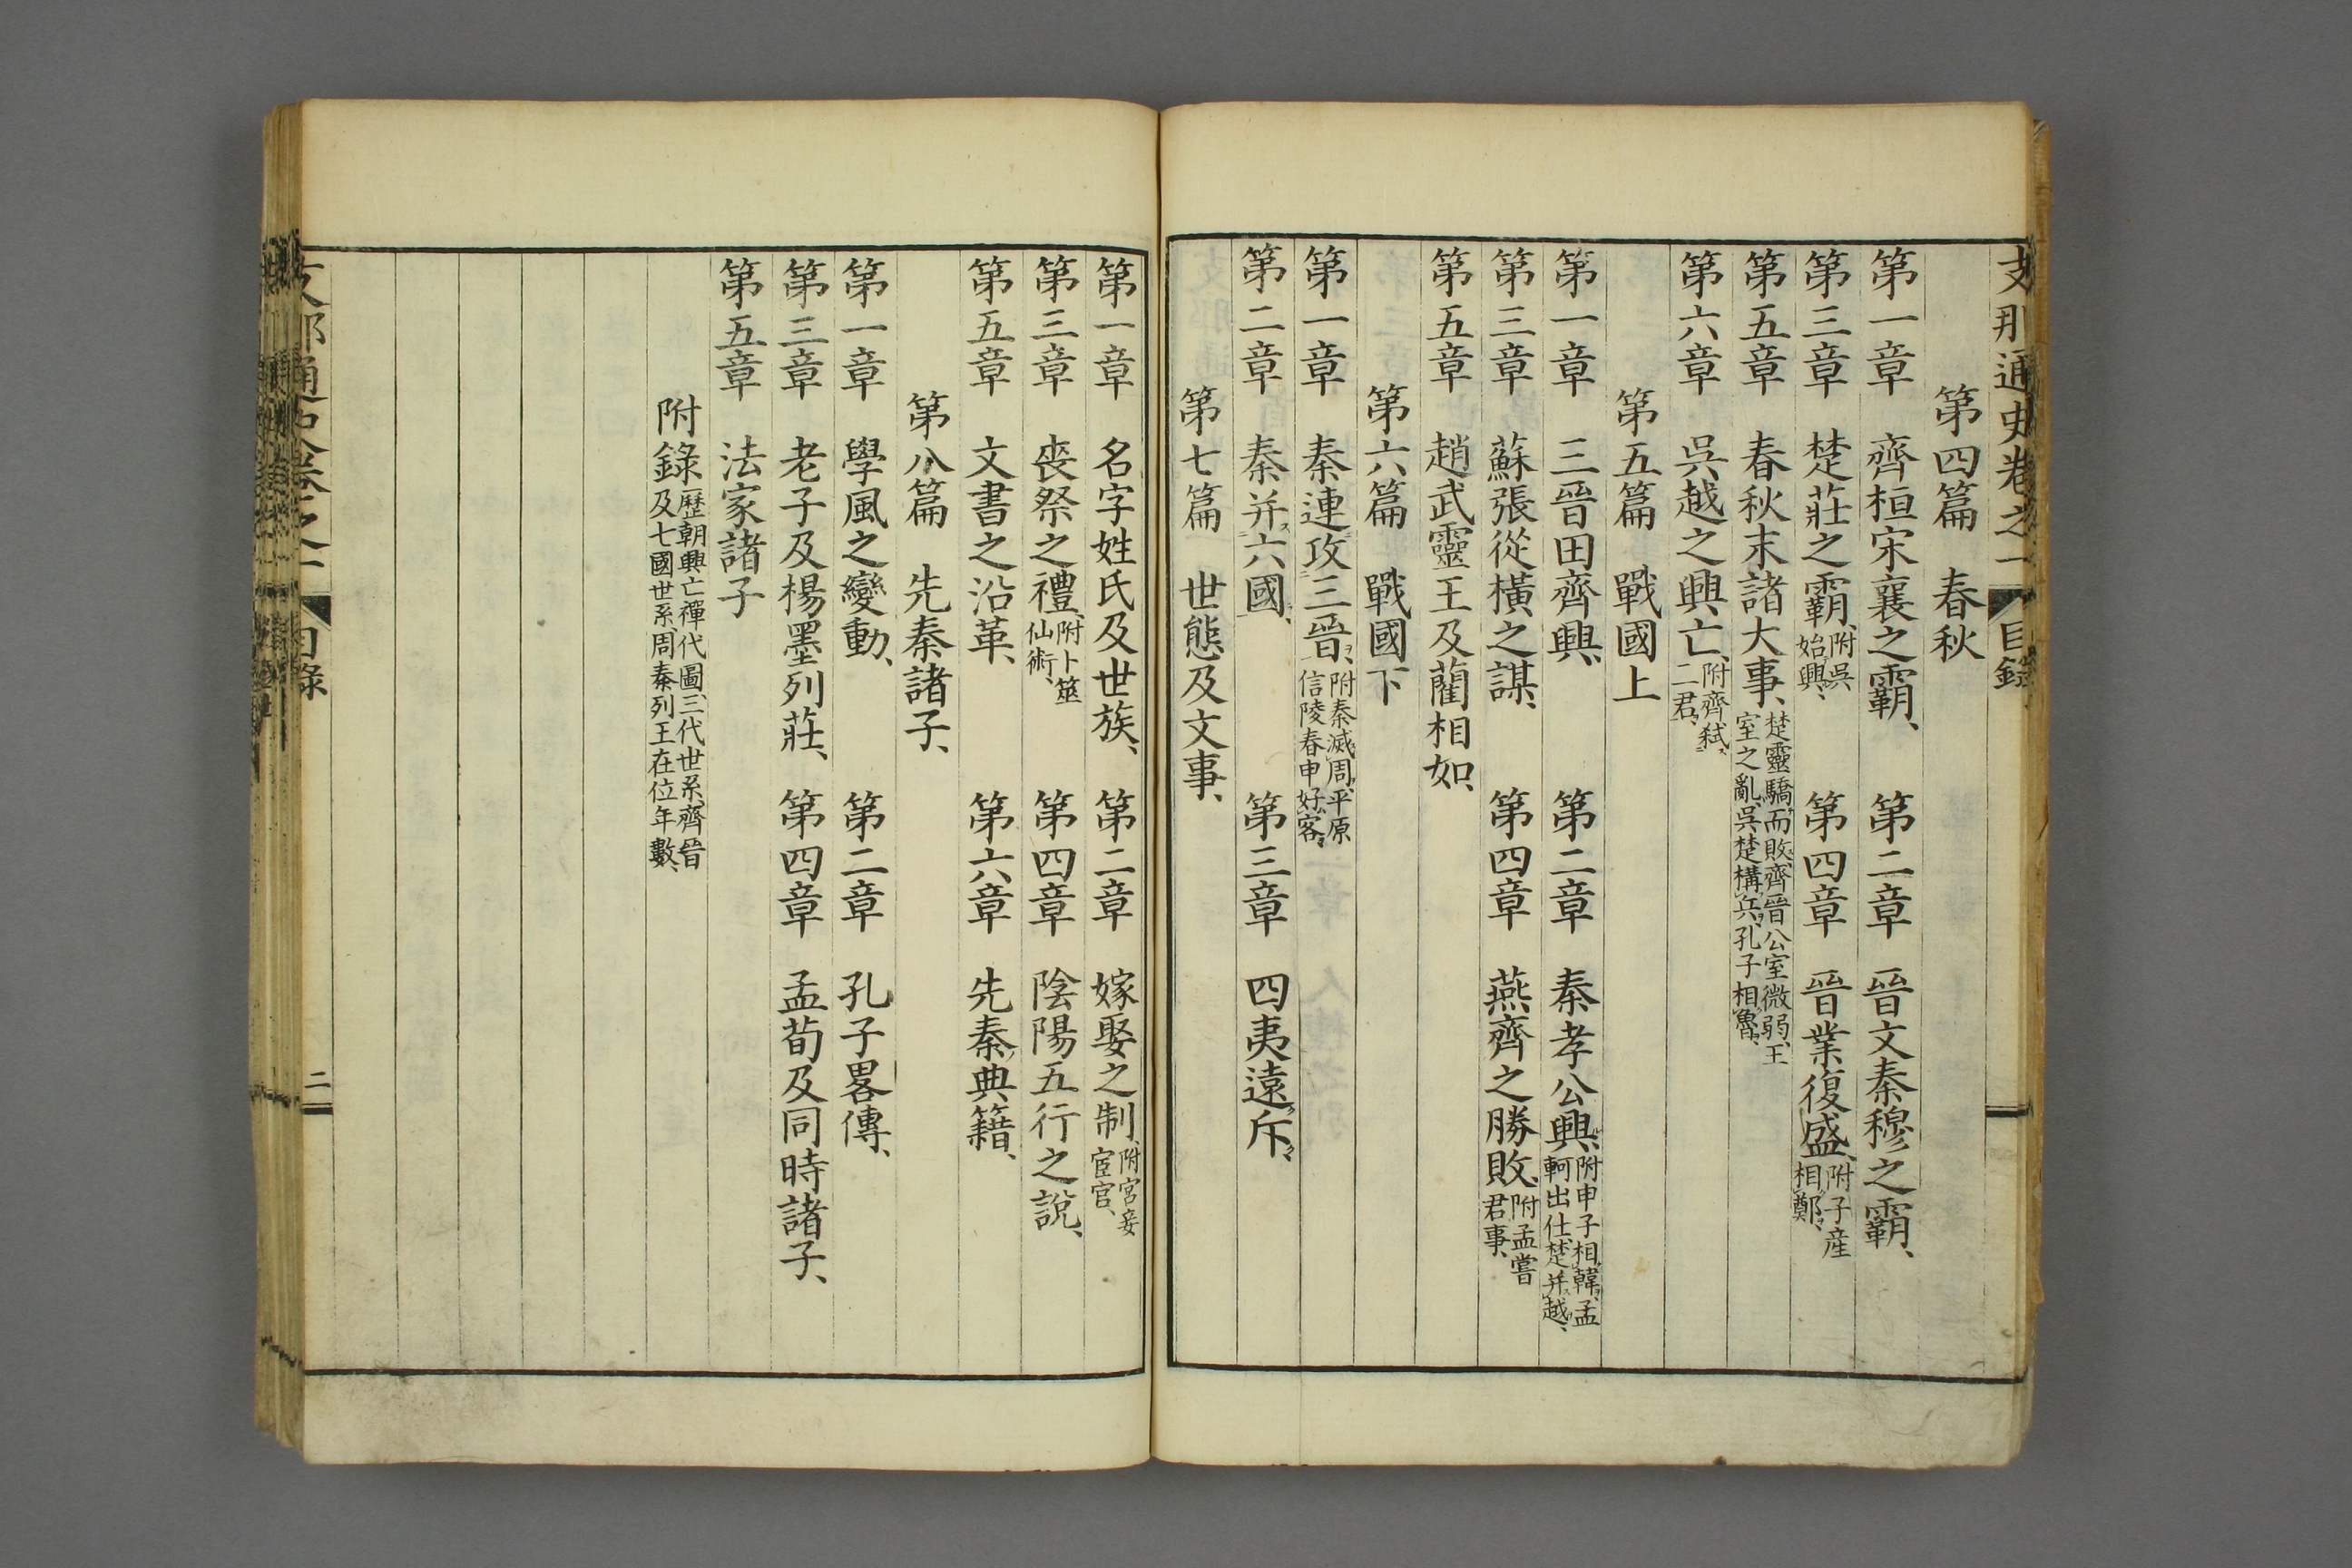 支那通史卷之一 目錄
第四篇 春秋
第一章 齊桓宋襄之霸、 第二章 晉文秦穆之霸、
第三章 楚莊之霸、附吳始興、 第四章 晉業復盛、附子產相鄭、
第五章 春秋末諸大事、楚靈驕而敗、齊晉公室微弱、王室之亂、吳楚構兵、孔子相魯、
第六章 吳越之興亡、附齊弑二君、
第五篇 戰國上
第一章 三晉田齊興、 第二章 秦孝公興、附申子相韓、孟軻出仕、楚并越、
第三章 蘇張從橫之謀、 第四章 燕齊之勝敗、附孟嘗君事、
第五章 趙武靈王及藺相如、
第六篇 戰國下
第一章 秦連攻三晉、附秦滅周、平原信陵春申好客、
第二章 秦并六國、 第三章 四夷遠斥、
第七篇 世態及文事、
第一章 名字姓氏及世族、 第二章 嫁娶之制、附宮妾宦官、
第三章 喪祭之禮、附卜筮仙術、 第四章 陰陽五行之說、
第五章 文書之沿革、 第六章 先秦典籍、
第八篇 先秦諸子、
第一章 學風之變動、 第二章 孔子畧傳、
第三章 老子及楊墨列莊、 第四章 孟荀及同時諸子、
第五章 法家諸子
附錄 歷朝興亡禪代圖、三代世系、齊晉及七國世系、周秦列王在位年數、
支那通史卷之一 目錄 二